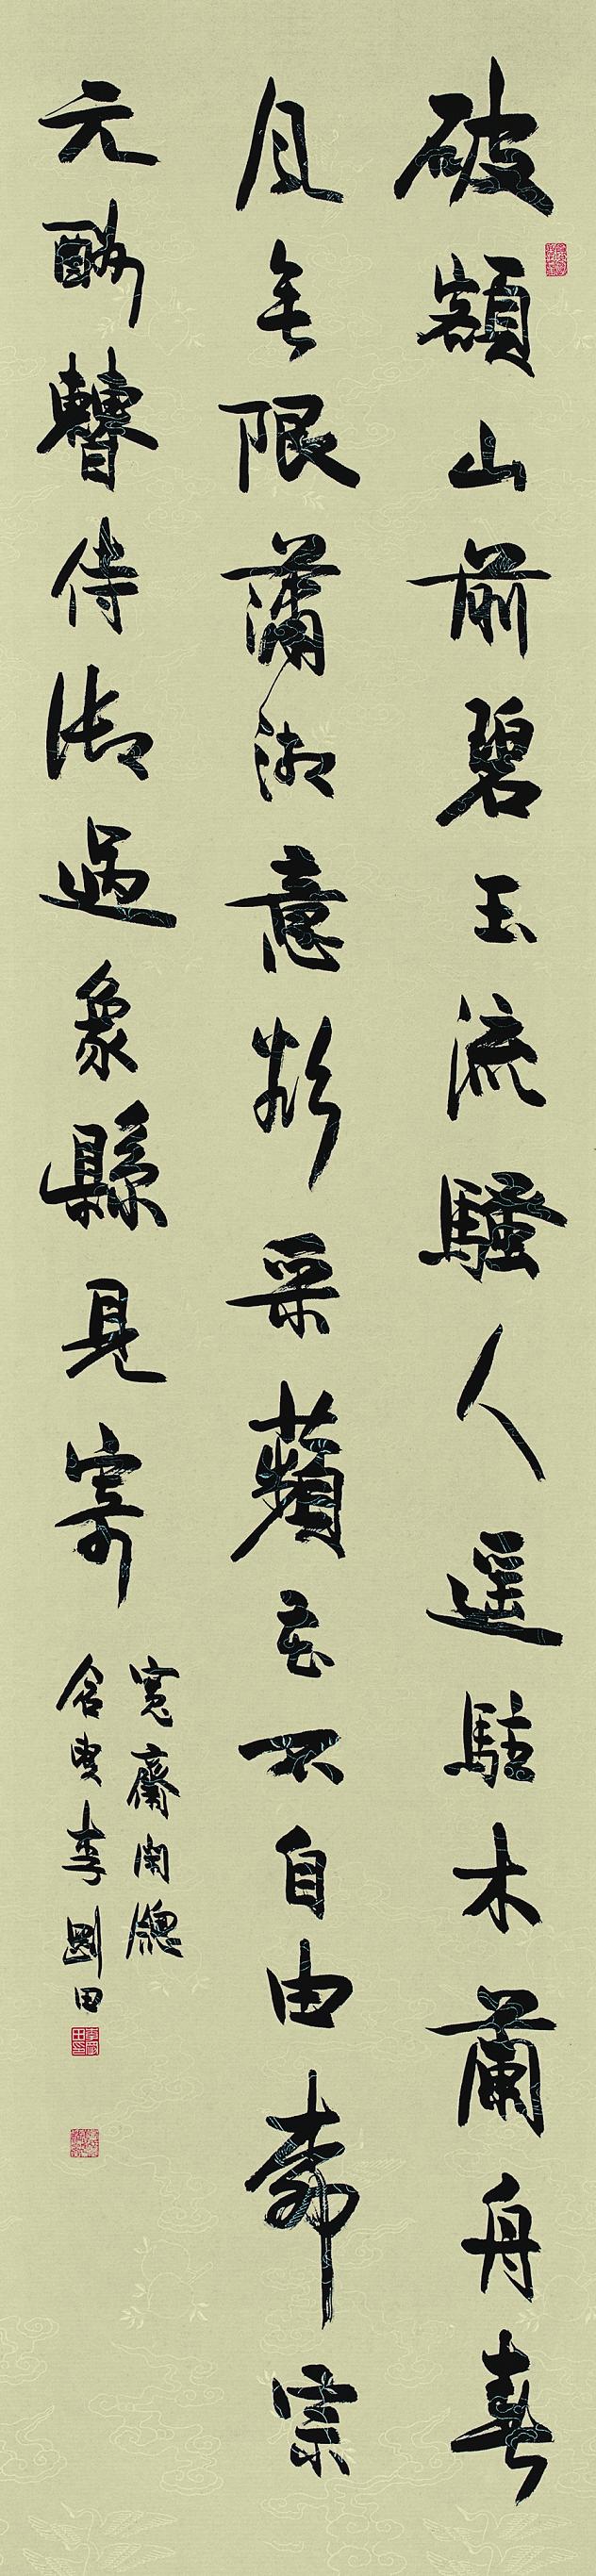 破額山前碧玉流騷人遥駐木蘭舟春
風無限瀟湘意欲采蘋花不自由柳宗
元酬曹侍御過象縣見寄
寬齋牕
含叟李剛田